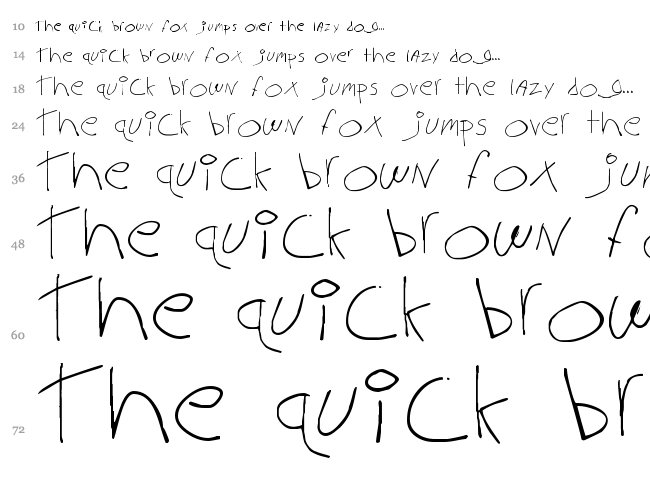 10 The quick brown fox jumps over the lazy dog...
14 The quick brown fox jumps over the lazy dog...
18 The quick brown fox jumps over the lazy dog...
24 The quick brown fox jumps over the
36 The quick brown fox jum
48 The quick brown fo
60 The quick brow
72 The quick br